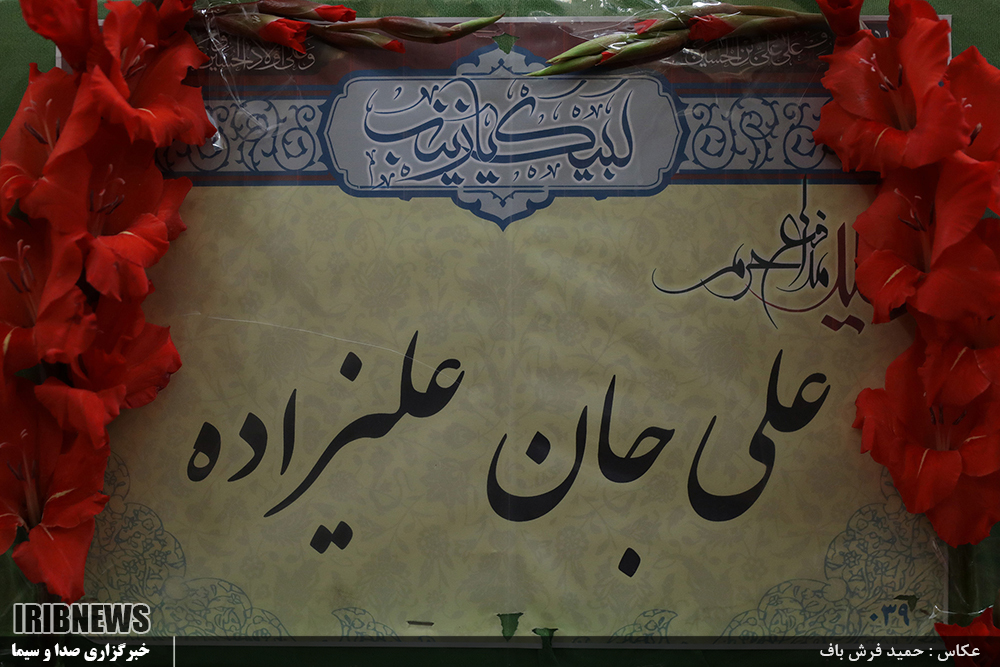 وعلی علی بن الحسین
لبیک یا زینب
مدافع حرم
علی جان علیزاده
۰۳۹
IRIBNEWS
خبرگزاری صدا و سیما
عکاس : حمید فرش باف